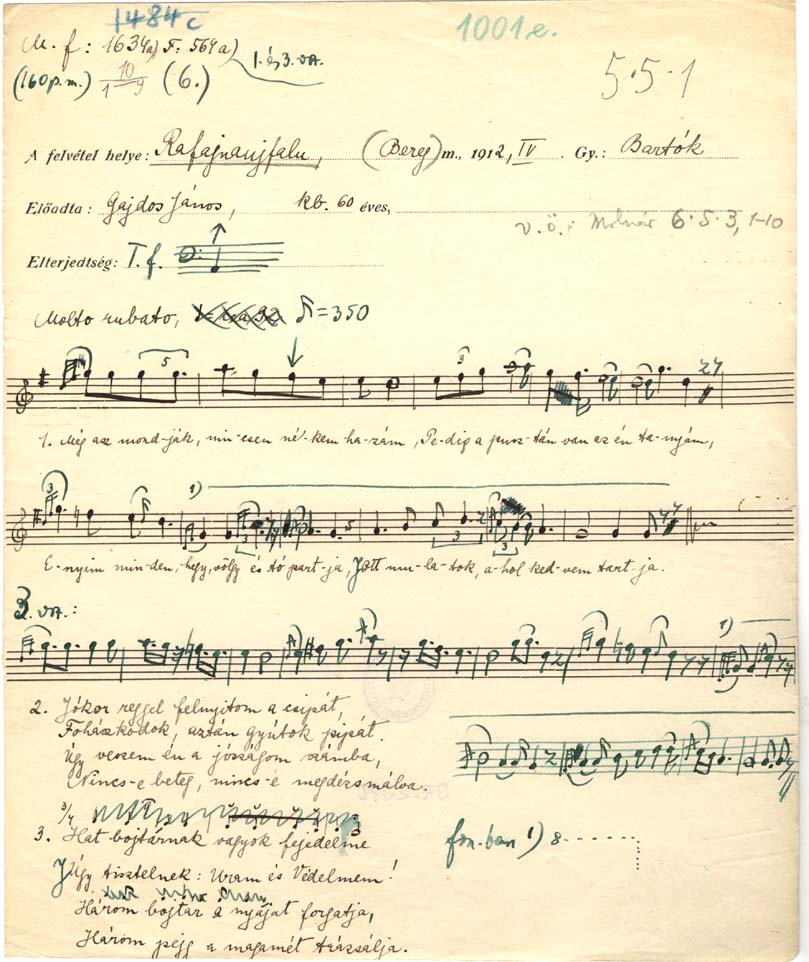 1484c
1001e.
M. f: 1634a) F: 564a)
1. és 3. vsz.
(160 p.m.) (6.)
5·5·1
A felvétel helye: Rafajnaujfalu, (Bereg) m., 1912, IV. Gy.: Bartók
Előadta: Gajdos János, kb. 60 éves,
v.ö.: Molnár 6·5·3, 1-10
Elterjedtség: T. f.
Molto rubato, =350
5 3
1. Még azt mond-ják, nin-csen né-kem ha-zám, Pe-dig a pusz-tán van az én ta-nyám,
3 1)
3 5 3 3
E-nyim min-den, hegy, völgy és tó part-ja, Jött mu-la-tok, a-hol ked-vem tart-ja.
3. vsz.:
1)
2. Jókor reggel felnyitom a csipát,
Fohászkodok, aztán gyútok pipát.
Úgy veszem én a jószágom számba,
Nincs-e beteg, nincs-e megdézsmálva.
3/4
3. Hat bojtárnak vagyok fejedelme
Úgy tisztelnek: Uram és Védelmem!
Három bojtár a nyájat forgatja,
Három pejg a magamét strázsálja.
fon-ban 1) 8